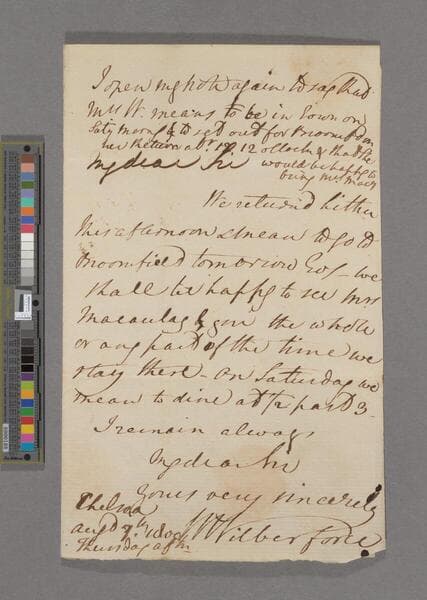 I open my note again to say that
Mrs W. means to be in Town on
Saty Morng & to set out for Broomfd on
her Return abt 12 o'Clock & that She
would be happy to
bring Mrs Macy
My dear Sir
We return'd hither
this afternoon & mean to go to
Broomfield tomorrow Evg - we
shall be happy to see Mrs
Macaulay & you the whole
or any part of the time we
stay there. On Saturday we
mean to dine at 1/2 past 3.
I remain always
My dear Sir
Yours very sincerely
W Wilberforce
Chelsea
Augt
Thursday aftn